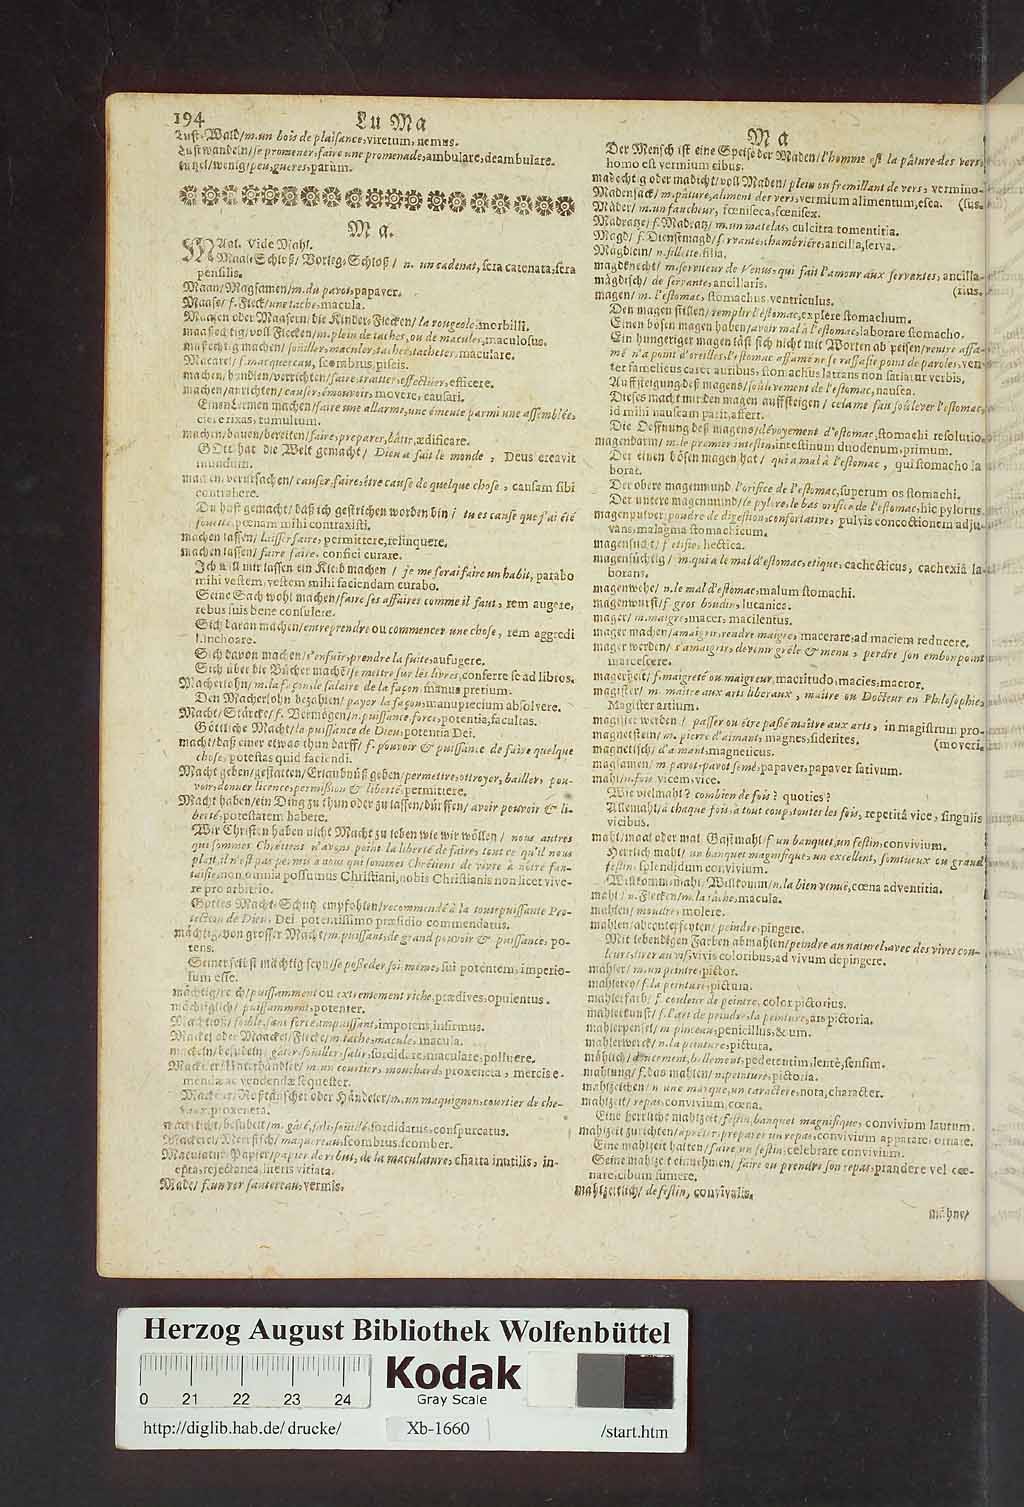 194 Lu Ma
Lust-Wald/m.un bois de plaisance, viretum, nemus.
Lustwandeln/se promener, faire une promenade, ambulare, deambulare.
wenig/peu, gueres, parùm.
Ma.
Maal. Vide Mahl.
Maal-Schloß/Vorleg-Schloß/ n. un cadenat, sera catenata, sera
pensilis.
Maan/Magsamen/m.du pavot, papaver.
Maase/ f. Fleck/une tache, macula.
Maasen oder Maasern, die Kinder-Flecken/ la rougeole, morbilli.
maaßechtig/voll Flecken/m.plein de taches, ou de macules, maculosus.
maßechtig machen/ souiller, maculer, tacher, tacheter, maculare.
Macarel/ f.macquereau, scombrus, piscis.
machen/handlen/verrichten/faire, traitter, effectuer, efficere.
machen/anrichten/ causer, émouvoir, movere, causari.
Einen Lermen machen/faire une allarme, une émeute parmi une assemblée,
ciere rixas, tumultum.
machen/bauen/bereiten/ faire, preparer, bâtir, ædificare.
GOtt hat die Welt gemacht/ Dieu a fait le monde, Deus creavit
mundum.
machen/verursachen/ causer, faire, être cause de quelque chose, causam sibi
contrahere.
Du hast gemacht/daß ich gestrichen worden bin/ tu es cause que j'ai été
fouetté, pœnam mihi contraxisti.
machen lassen/ laisser faire, permittere, relinquere.
machen lassen/ faire faire, confici curare.
Ich will mir lassen ein Kleid machen/ je me ferai faire un habit, parabo
mihi vestem, vestem mihi faciendam curabo.
Seine Sach wohl machen/faire ses affaires comme il faut, rem augere,
rebus suis bene consulere.
Sich daran machen/entreprendre ou commencer une chose, rem aggredi
l.inchoare.
Sich davon machen/s'enfuir, prendre la fuite, aufugere.
Sich über die Bücher machẽ/se mettre sur les livres, conferre se ad libros.
Macherlohn/m.la façon, le salaire de la façon, manus pretium.
Den Macherlohn bezahlen/ payer la façon, manupretium absolvere.
Macht/Stärcke/ f. Vermögen/n.puissance, force, potentia, facultas.
Göttliche Macht/la puissance de Dieu, potentia Dei.
macht/daß einer etwas thun darff/ f. pouvoir & puissance de faire quelque
chose, potestas quid faciendi.
Macht geben/gestatten/Erlaubnüß geben/permettre, ottroyer, bailler, pou-
voir, donner licence, permission & liberté, permittere.
Macht haben/ein Ding zu thun oder zu lassen/dürffen/ avoir pouvoir & li-
berté, potestatem habere.
Wir Christen haben nicht Macht zu leben wie wir wöllen/ nous autres
qui sommes Chrétiens n'avons point la liberté de faire, tout ce qu'il nous
plait, il n'est pas permis a nous qui sommes Chrétiens de vivre à nôtre fan-
taisie, non omnia possumus Christiani, nobis Christianis non licet vive-
re pro arbitrio.
Gottes Macht-Schutz empfohlen/recommendé à la toute puissante Pro-
tection de Dieu, Dei potentissimo præsidio commendatus.
mächtig/von grosser Macht/m.puissant, de grand pouvoir & puissance, po-
tens.
Seiner selbst mächtig seyn/se posseder soi-même, sui potentem, imperio-
sum esse.
mächtig/reich/puissamment ou extremement riche, prædives, opulentus.
mächtiglich/ puissamment, potenter.
Machtloß/ foible, sans force, impuissant, impotens, infirmus.
Mackel oder Maackel/Flecke/m.tache, macule, macula.
mackeln/besudeln/gâter, souiller, salir, sordidare, maculare, polluere.
Mackeler/Unterhändler/ m.un courtier, mouchard, proxeneta, mercis e-
mendæ ac vendendæ sequester.
Mackeler/Roßtäuscher oder Händeler/m.un maquignon, courtier de che-
vaux, proxeneta.
besudelt/ m. gâté, sali, souillé, sordidatus, conspurcatus.
Mackerel/Meerfisch/ maquereau, scombrus, scomber.
Maculatur-Papier/papier de rebut, de la maculature, charta inutilis, in-
epta, rejectanea, literis vitiata.
Made/ f.un ver sautereau, vermis.
Ma
Der Mensch ist eine Speise der Maden/l'homme est la pâture des vers,
homo est vermium cibus.
madechtig oder madicht/voll Maden/ plein ou fremillant de vers, vermino-
Madensack/m.pâture, aliment des vers, vermium alimentum, esca. (sus.
Mäder/ m.un faucheur, fœniseca, fœnisex.
Madratze/ f.Madratz/ m.un matelas, culcitra tomentitia.
Magd/ f. Dienstmagd/servante, chambriére, ancilla, serva.
Mägdlein/ n.fillette, filia.
magdknecht/ m.serviteur de Venus, qui fait l'amour aux servantes, ancilla-
mägdisch/ de servante, ancillaris. (rius.
magen/ m. l'estomac, stomachus, ventriculus.
Den magen füllen/ remplir l'estomac, explere stomachum.
Einen bösen magen haben/avoir mal à l'estomac, laborare stomacho.
Ein hungeriger magen läst sich nicht mit Worten abspeisen/ventre affa-
mé n'a point d'oreilles, l'estomac affamé ne se rassasie point de paroles, ven-
ter famelicus caret auribus, stomachus latrans non satiatur verbis.
Auffsteigung deß magens/soulevement de l'estomac, nausea.
Dieses macht mir den magen auffsteigen/ cela me fait soûlever l'estomac,
id mihi nauseam parit, affert.
Die Oeffnung deß magens/dévoyement d'estomac, stomachi resolutio.
magendarm/ m.le premier intestin, intestinum duodenum, primum.
Der einen bösen magen hat/ qui a mal à l'estomac, qui stomacho la
borat.
Der obere magenmund/l'orifice de l'estomac, superum os stomachi.
Der untere magenmund/le pylore, le bas orifice de l'estomac, hic pylorus.
magenpulver, poudre de digestion, confortative, pulvis concoctionem adju-
vans, malagma stomachicum.
magensucht/ f etisie, hectica.
magensüchtig/ m.qui a le mal d'estomac, etique, cachecticus, cachexiâ la-
borans.
magenwehe/ n.le mal d'estomac, malum stomachi.
magenwurst/f gros boudin, lucanica.
mager/ m.maigre, macer, macilentus.
mager machen/amaigrir, rendre maigre, macerare, ad maciem reducere.
mager werden/ s'amaigrir, devenir grêle & menu, perdre son embonpoint
marcescere.
magerheit/ f.maigreté ou maigreur, macritudo, macies, macror.
magister/ m. maitre aux arts liberaux, maitre ou Docteur en Philosophie,
Magister artium.
magister werden/ passer ou être passé maitre aux arts, in magistrum pro-
magnetstein/ m. pierre d'aimant, magnes, siderites. (moveri.
magnetisch/ d'aimant, magneticus.
magsamen/ m.pavot, pavot semé, papaver, papaver sativum.
mahl/n.fois vicem, vice.
Wie vielmahl? combien de fois? quoties?
Allemahl/à chaque fois, à tout coup, toutes les fois, repetitâ vice, singulis
vicibus.
mahl/maal oder mal, Gastmahl/f un banquet, un festin, convivium.
Herrlich mahl/ un banquet magnifique, un excellent, somtueux ou grand
festin, splendidum convivium.
Willkomm-mahl/Willkomm/n.la bien venuë, cœna adventitia.
mahl/ n.Flecken/m.la tâche, macula.
mahlen/moudre, molere.
mahlen/abconterfeyten/ peindre, pingere.
Mit lebendigen Farben abmahlen/peindre au naturel, avec des vives cou-
leurs, tirer au vif, vivis coloribus, ad vivum depingere.
mahler/ m.un peintre, pictor.
mahlerey/ f.la peinture, pictura.
mahlerfarb/ f. couleur de peintre, color pictorius.
mahlerkunst/ f.l'art de peindre, la peinture, ars pictoria.
mahlerpensel/ m pinceau, penicillus, & um.
mahlerwerck/ n.la peinture, pictura.
mählich/ doucement, bellement, pedetentim, lentè, sensim.
mahlung/ f.das mahlen/ n.peinture, pictoria.
mahlzeichen/ n une marque, un caractere, nota, character.
mahlzeit/ repas, convivium, cœna.
Eine herrliche mahlzeit/festin, banquet magnifique, convivium lautum.
mahlzeit zurichten/aprêter, preparer un repas, convivium apparare, ornare.
Eine mahlzeit halten/ faire un festin, celebrare convivium.
Seine mahlzeit einnehmen/ faire ou prendre son repas, prandere vel cœ-
nare, cibum sumere.
mahlzeitlich/ de festin, convivalis.
mähne/
Herzog August Bibliothek Wolfenbüttel
Kodak
Gray Scale
0 21 22 23 24
http://diglib.hab.de/drucke/ Xb-1660 /start.htm